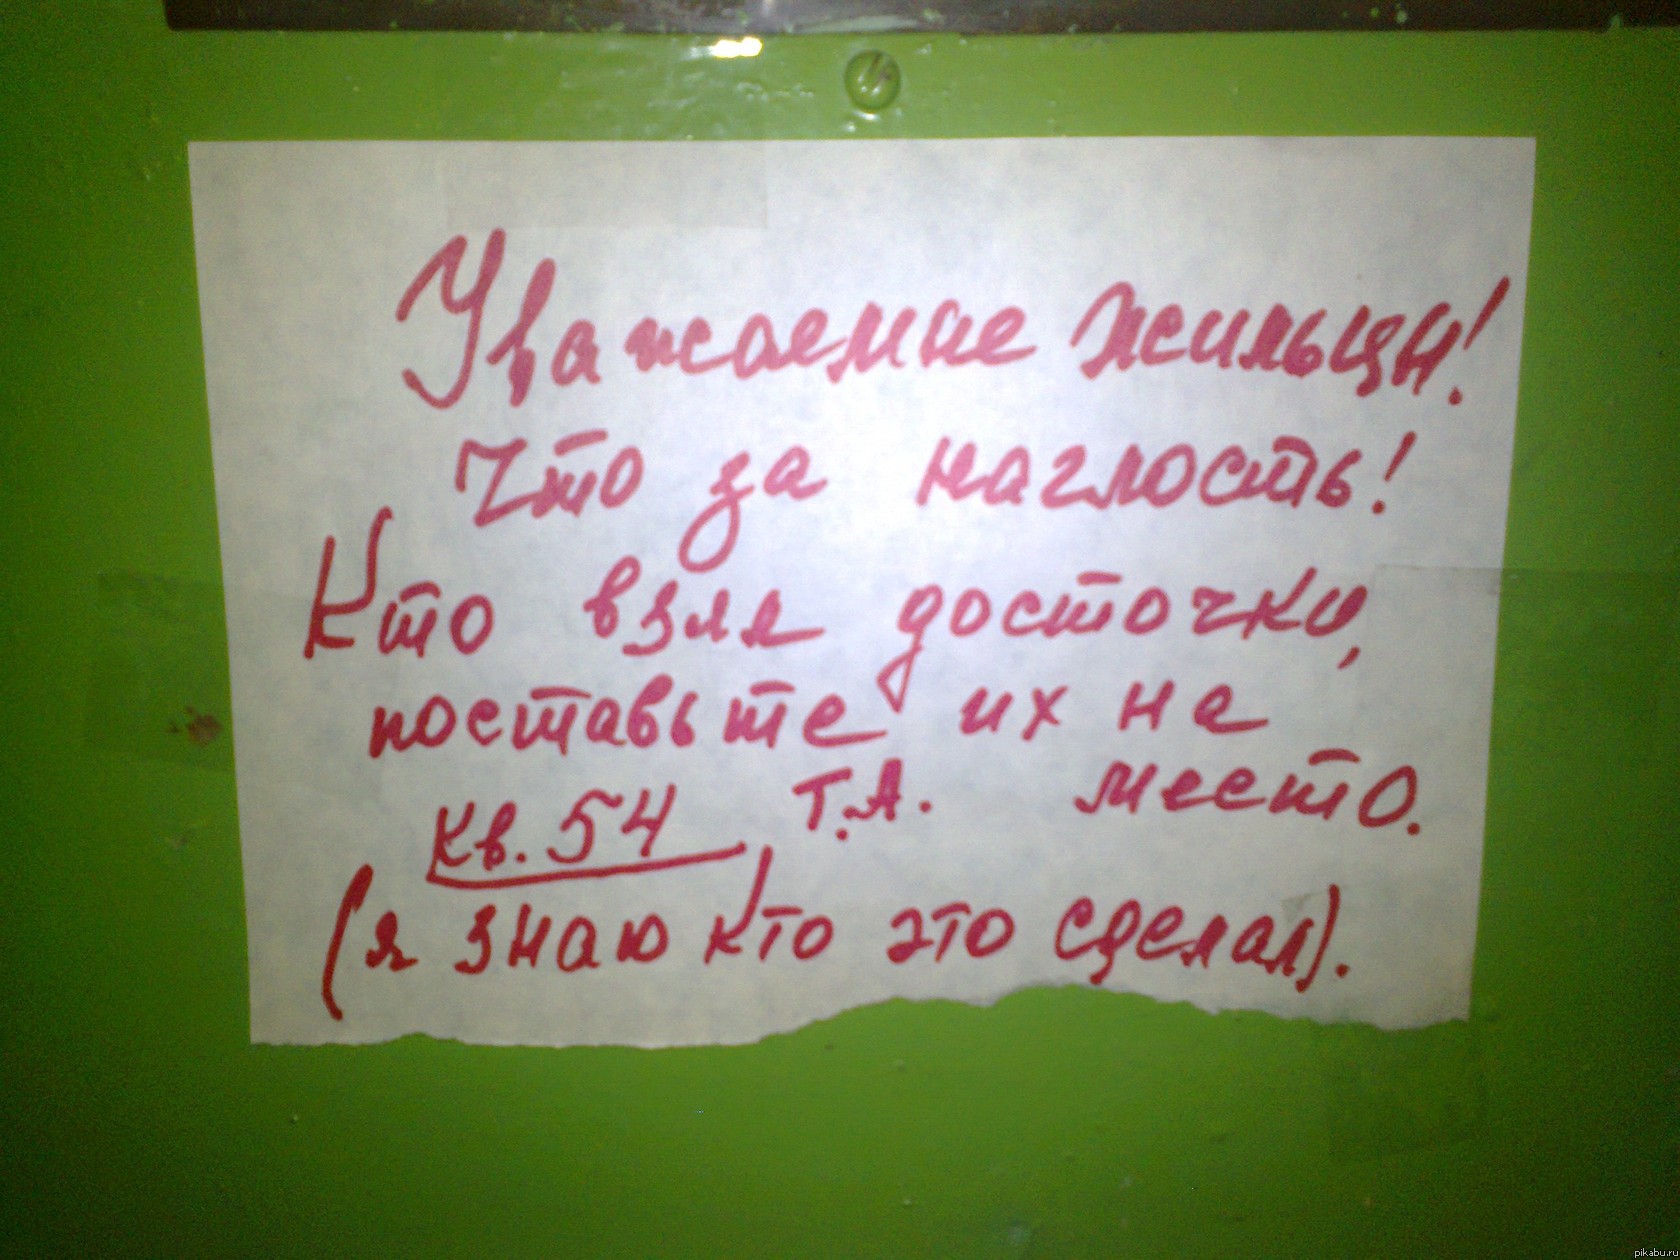 Уважаемие жильци!
Что за наглость!
Кто взял досточки,
поставьте их на
место.
кв. 54 Т.А.
(я знаю кто это сделал).
pikabu.ru